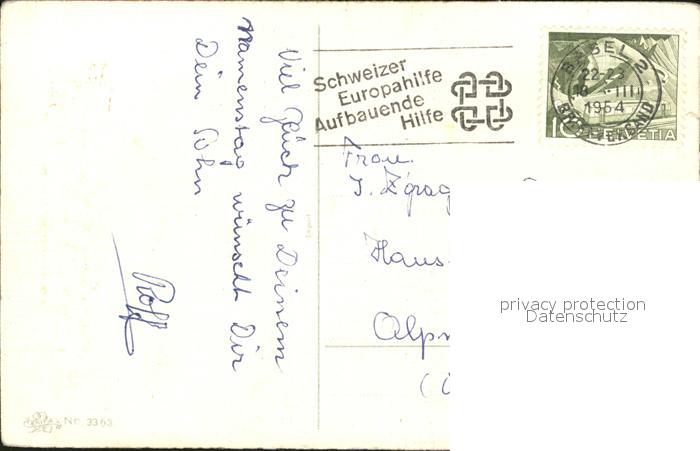 Viel Glück zu Deinem
Namenstag wünscht Dir
Dein Sohn
Rolf
Schweizer
Europahilfe
Aufbauende
Hilfe
BASEL 2
22-23
18. III
1954
BRIEFVERSAND
10 HELVETIA
Frau
Haus
Alpn
privacy protection
Datenschutz
Nr. 3363